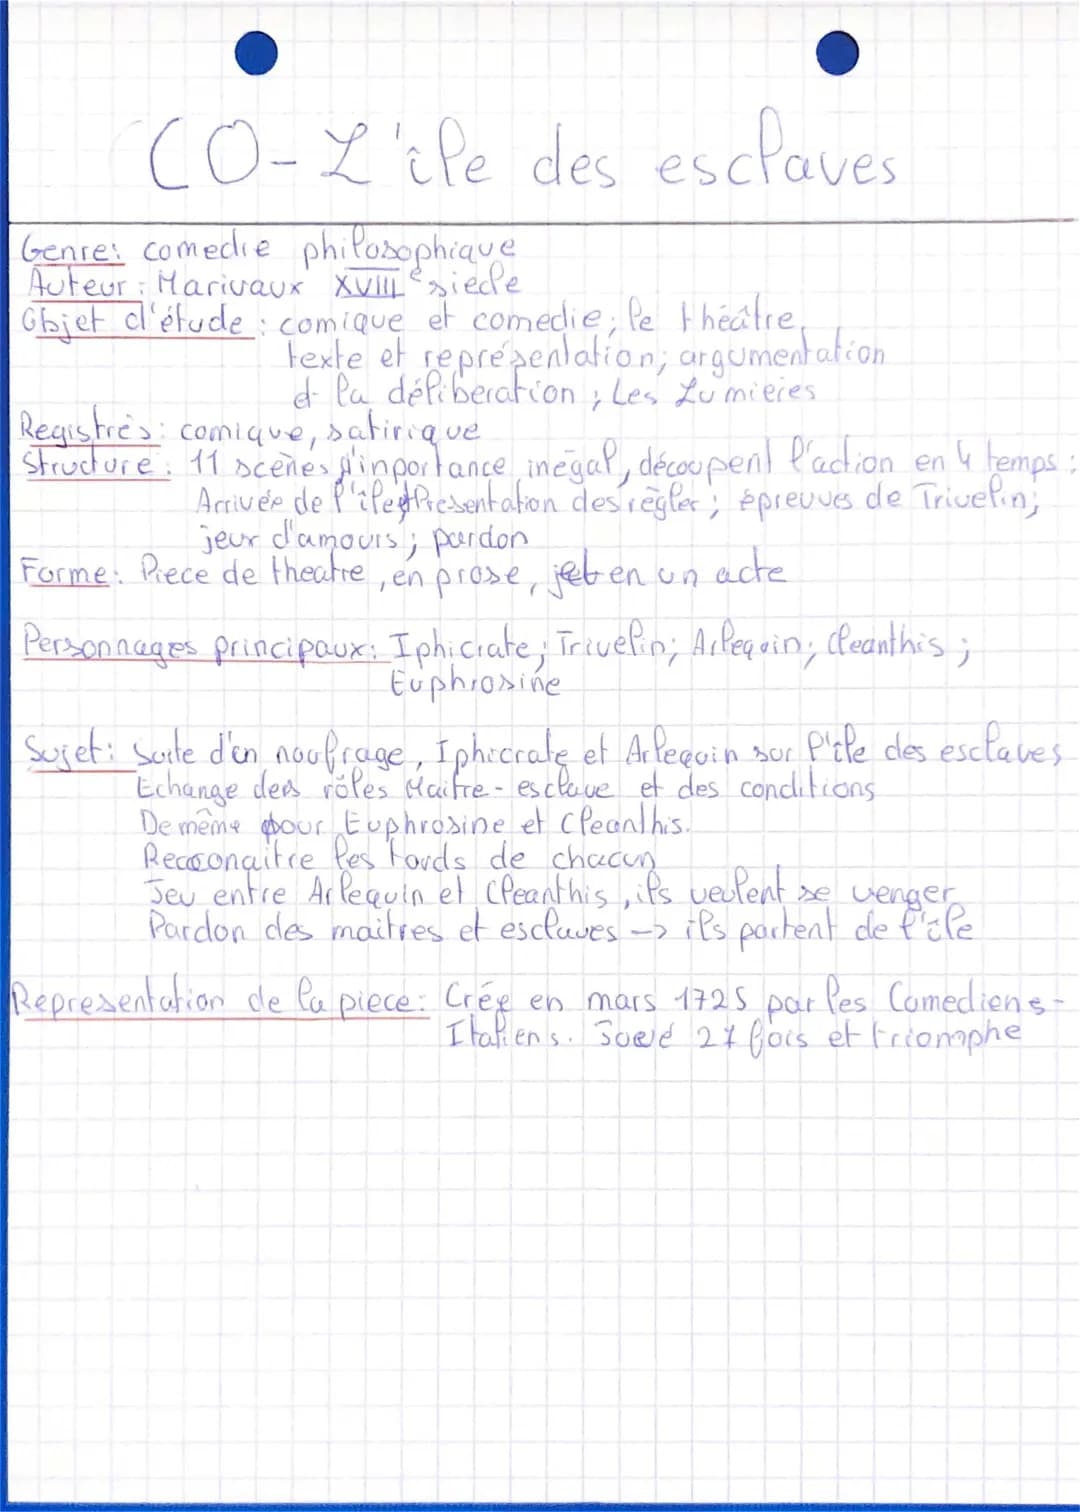 CO-L'île des esclaves
Genre: comedie philosophique
Auteur: Marivaux XVIII e siecle
Objet d'étude: comique et comedie; le théâtre,
texte et représentation; argumentation
et la déliberation; Les Lumieres
Registres: comique, satirique
Structure: 11 scènes d'inportance inégal, découpent l'action en 4 temps:
Arrivée de l'île et Presentation des règles; épreuves de Trivelin;
jeux d'amours; pardon
Forme: Piece de theatre, en prose, et en un acte
Personnages principaux: Iphicrate; Trivelin; Arlequin; Cleanthis;
Euphrosine
Sujet: Suite d'un naufrage, Iphicrate et Arlequin sur l'île des esclaves
Echange des rôles Maitre-esclave et des conditions
De même pour Euphrosine et Cleanthis.
Reconnaitre les tords de chacun
Jeu entre Arlequin et Cleanthis, ils veulent se venger
Pardon des maitres et esclaves -> ils partent de l'île
Representation de la piece: Crée en mars 1725 par les Comediens-
Italiens. Joué 21 fois et triomphe